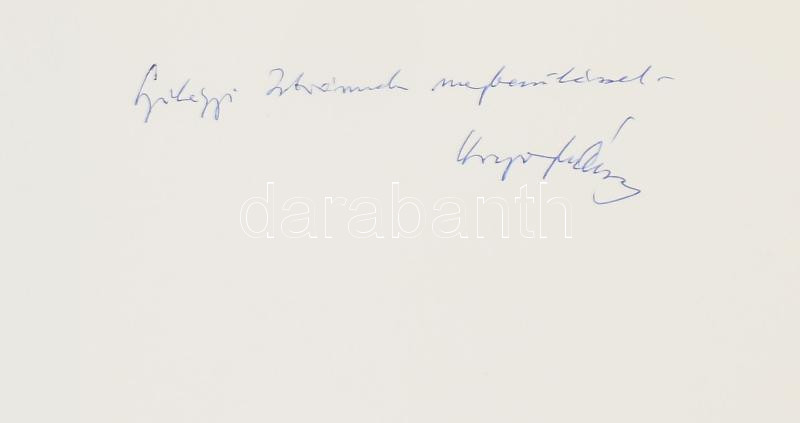 Szilágyi Istvánnak megbecsüléssel –
darabanth